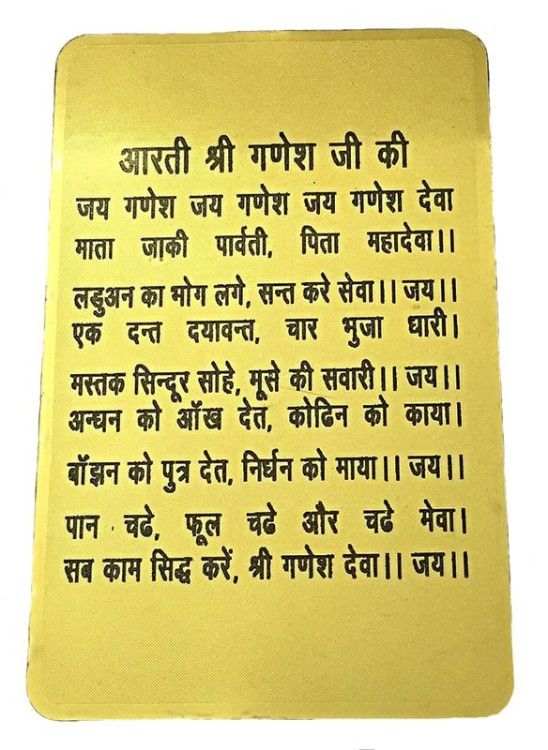 आरती श्री गणेश जी की
जय गणेश जय गणेश जय गणेश देवा
माता जाकी पार्वती, पिता महादेवा।।
लडुअन का भोग लगे, सन्त करे सेवा।। जय।।
एक दन्त दयावन्त, चार भुजा धारी।
मस्तक सिन्दूर सोहे, मूसे की सवारी।। जय।।
अन्धन को ऑंख देत, कोढिन को काया।
बॉंझन को पुत्र देत, निर्धन को माया।। जय।।
पान चढे, फूल चढे और चढे मेवा।
सब काम सिद्ध करें, श्री गणेश देवा।। जय।।